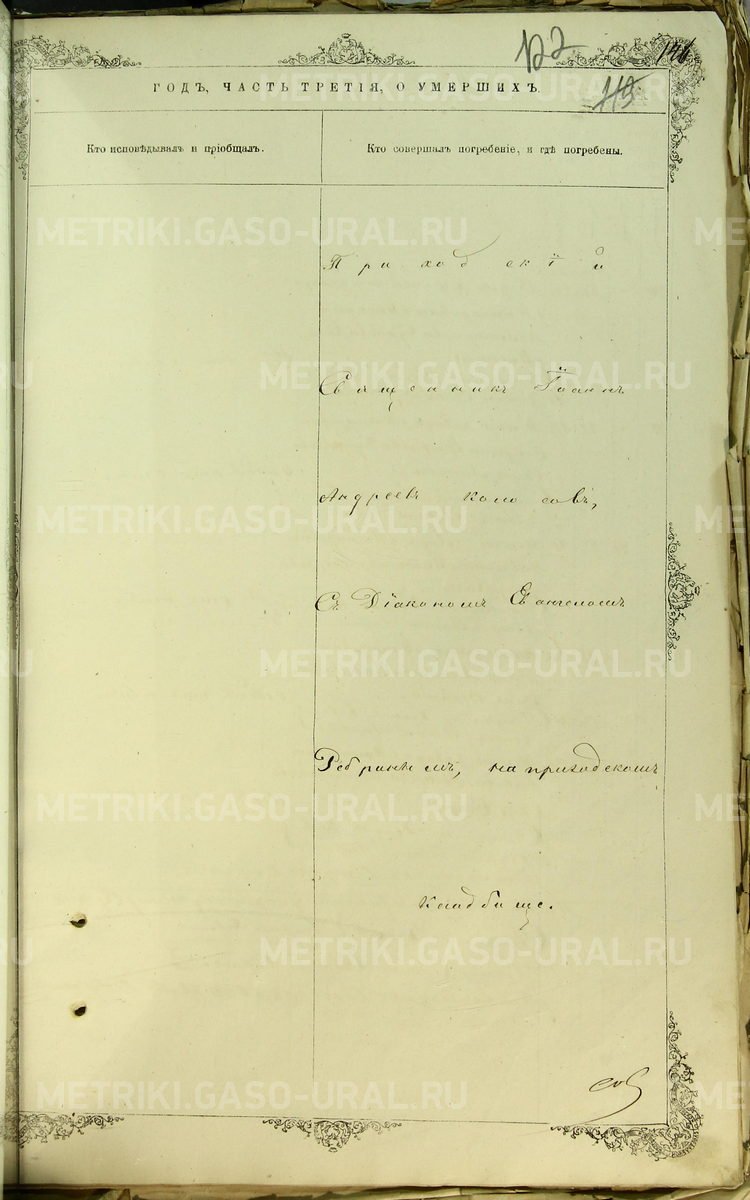 122
146
115
ГОДЪ, ЧАСТЬ ТРЕТІЯ, О УМЕРШИХЪ.
Кто исповѣдывалъ и пріобщалъ.
Кто совершалъ погребеніе, и гдѣ погребены.
METRIKI.GASO-URAL.RU
Приходскій
Священникъ Іоаннъ
Андреевъ Колосовъ,
Съ Діакономъ Евангеломъ
на приходскомъ
Кладбище.